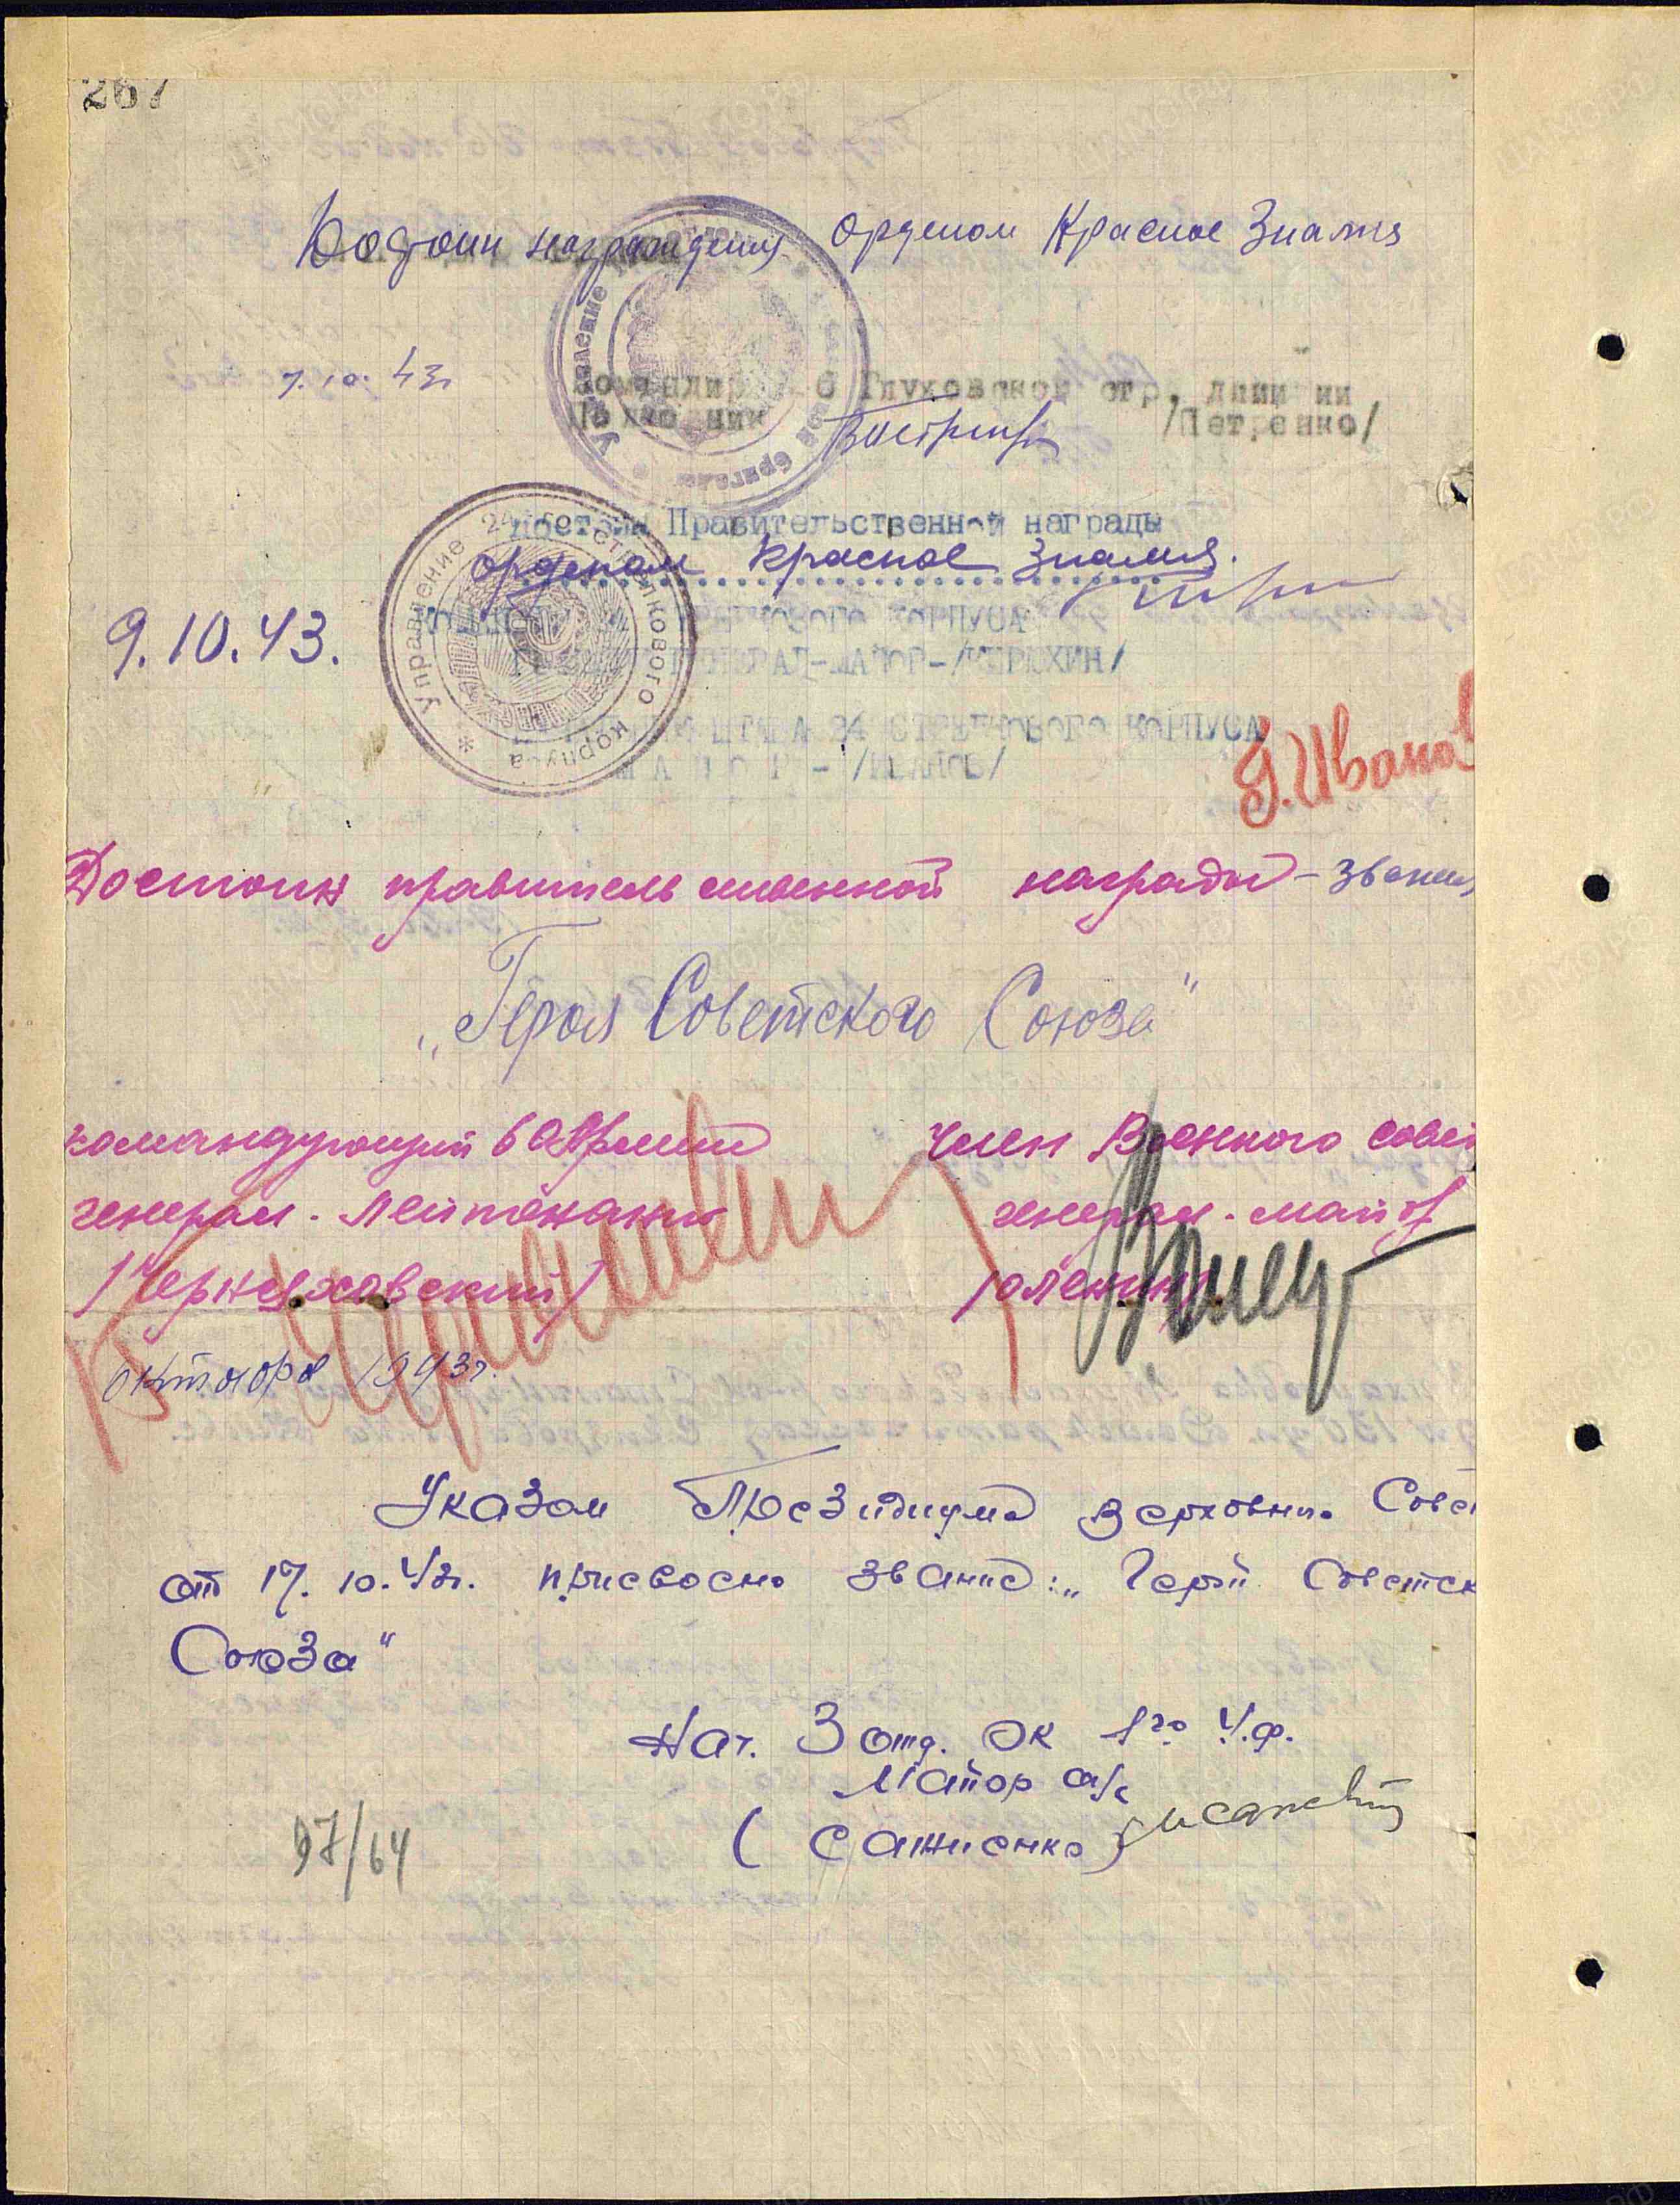 267
Достоин награждения орденом Красное Знамя
7.10.43г
Командир 6 Глуховской стр. дивизии
Полковник /Петренко/
Управление бригады
Достоин Правительственной награды
орденом Красное Знамя.
9.10.43.
Управление 24-го стрелкового корпуса
стрелкового корпуса
генерал-майор-/Кирюхин/
штаба 24 стрелкового корпуса
майор - /Иванов/
Г. Иванов
Достоин правительственной награды - звания
„Героя Советского Союза"
командующий 60 Армии Член Военного совет
генерал-лейтенант генерал-майор
/Черняховский/ /Оленин/
октября 1943г.
Указом Президиума Верховн. Сове
от 17.10.43г. присвоено звание: „Герой Советск
Союза"
Нач. 3 отд. ОК 1го У.Ф.
Майор а/с
(Сажиенко)
97/64